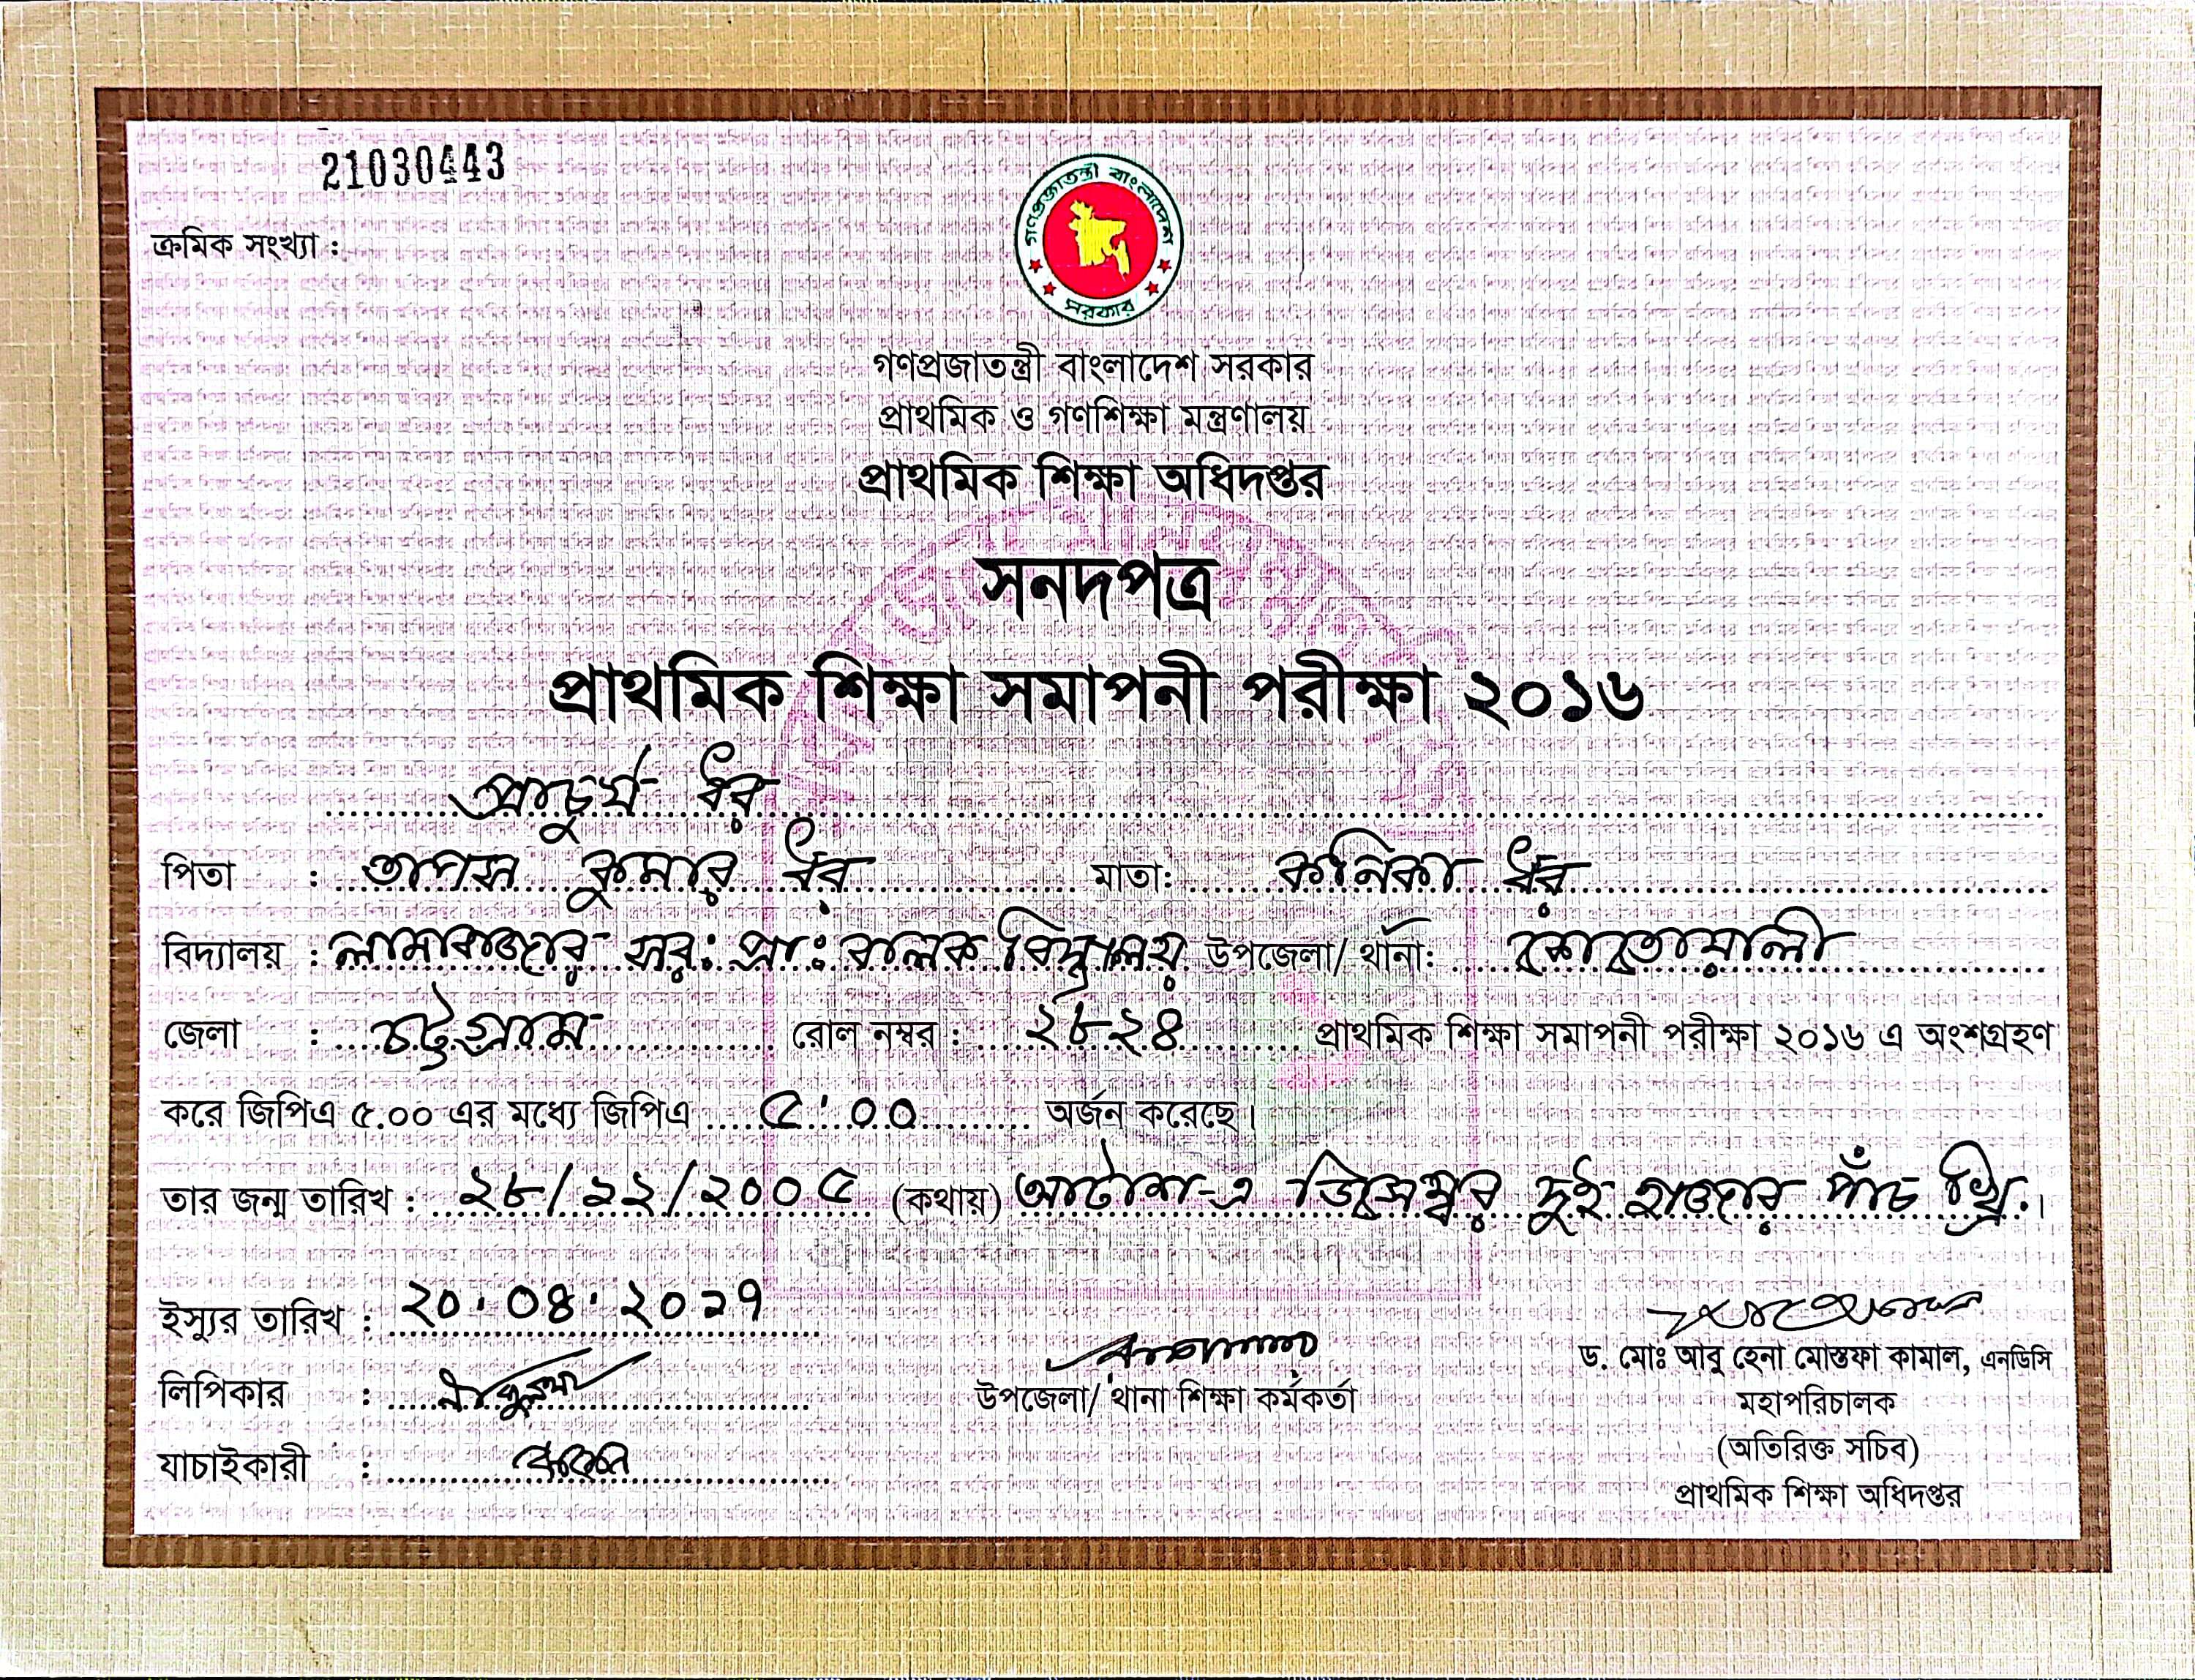 ক্রমিক সংখ্যা : 21030443
গণপ্রজাতন্ত্রী বাংলাদেশ
সরকার
গণপ্রজাতন্ত্রী বাংলাদেশ সরকার
প্রাথমিক ও গণশিক্ষা মন্ত্রণালয়
প্রাথমিক শিক্ষা অধিদপ্তর
সনদপত্র
প্রাথমিক শিক্ষা সমাপনী পরীক্ষা ২০১৬
প্রাচুর্য ধর
পিতা : তাপস কুমার ধর মাতা: কনিকা ধর
বিদ্যালয় : লামাবাজার সর: প্রা: বালক বিদ্যালয় উপজেলা/ থানা: কোতোয়ালী
জেলা : চট্টগ্রাম রোল নম্বর : ২৮২৪ প্রাথমিক শিক্ষা সমাপনী পরীক্ষা ২০১৬ এ অংশগ্রহণ
করে জিপিএ ৫.০০ এর মধ্যে জিপিএ ৫.০০ অর্জন করেছে।
তার জন্ম তারিখ : ২৮/১২/২০০৫ (কথায়) আটাশ-এ ডিসেম্বর দুই হাজার পাঁচ খ্রি:।
ইস্যুর তারিখ : ২০.০৪.২০১৭
লিপিকার :
যাচাইকারী :
উপজেলা/থানা শিক্ষা কর্মকর্তা
ড. মোঃ আবু হেনা মোস্তফা কামাল, এনডিসি
মহাপরিচালক
(অতিরিক্ত সচিব)
প্রাথমিক শিক্ষা অধিদপ্তর